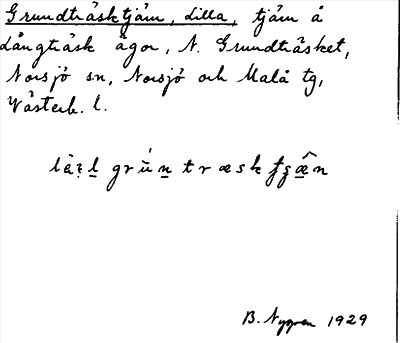 Grundträsktjärn, Lilla, tjärn å
Långträsk ägor, N. Grundträsket,
Norsjö sn, Norsjö och Malå tg,
Västerb. l.
grún træsk
B. Nygren 1929